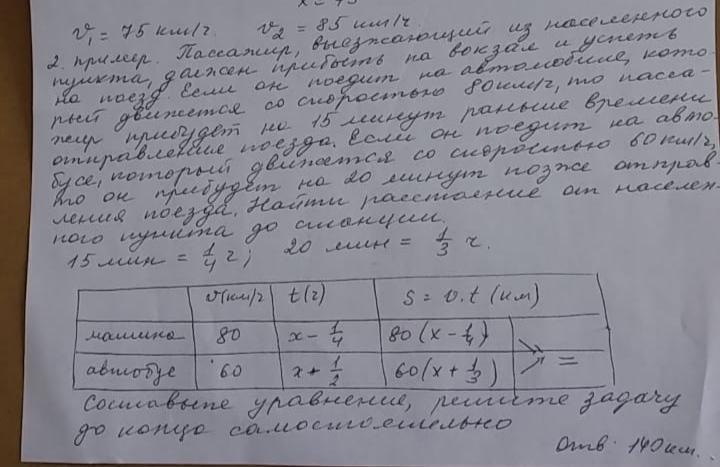 x = 75
v₁ = 75 км/г. v₂ = 85 км/г.
2. пример. Пассажир, выезжающий из населенного
пункта, должен прибыть на вокзал и успеть
на поезд. Если он поедит на автомобиле, кото-
рый движется со скоростью 80км/г, то пасса-
жир прибудет на 15 минут раньше времени
отправление поезда. Если он поедит на авто-
бусе, который движется со скоростью 60 км/г,
то он прибудет на 20 минут позже отправ-
ления поезда. Найти расстояние от населен-
ного пункта до станции.
15 мин = 1/4 г; 20 мин = 1/3 ч.
v(км/г t(г) S = v.t (км)
машина 80 x - 1/4 80(x - 1/4)
автобус 60 x + 1/2 60(x + 1/3) =
Составьте уравнение, решите задачу
до конца самостоятельно
Отв. 140км.